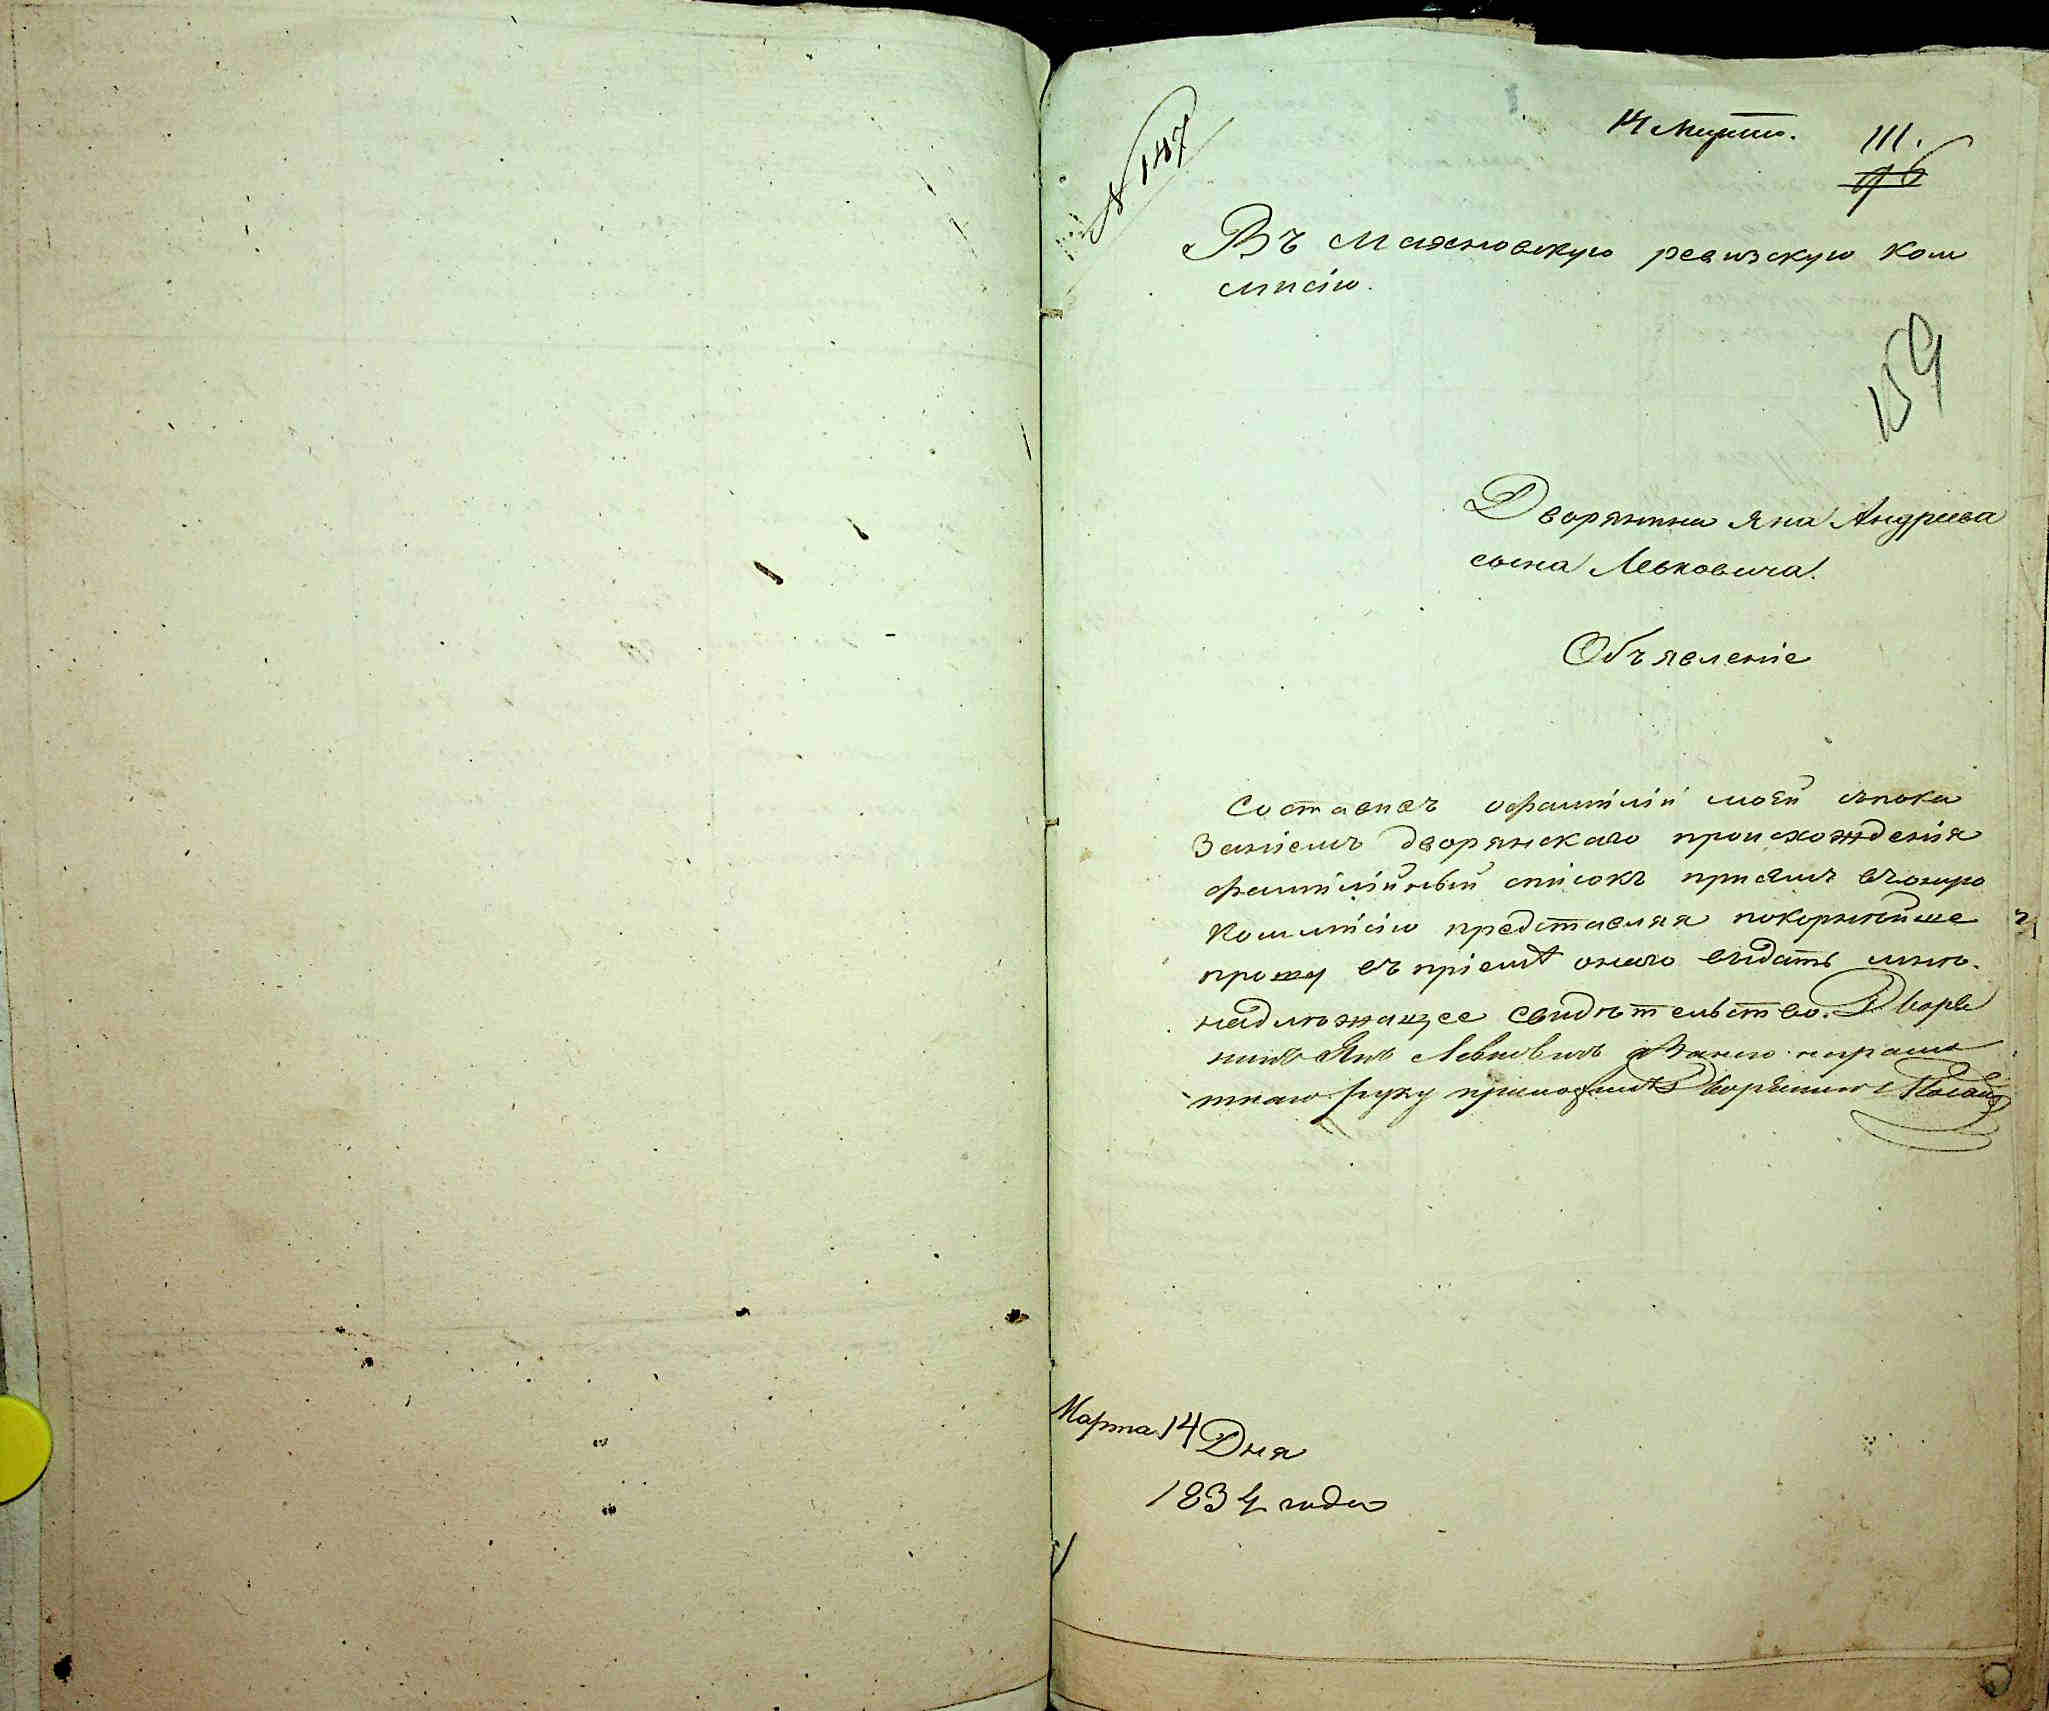 № 147
14 Марта.
111.
96
Въ Махновскую ревизскую Ком
мисію.
159
Дворянина Яна Андреева
сына Левковича.
Объявленіе
Составивъ офамиліи моей
дворянскаго происхожденія
фамилійный списокъ присемъ въоную
Коммисію представляя покорнѣйше
прошу въ пріемѣ онаго выдать мнѣ.
надлѣжащее свидѣтельство. Дворя
нинъ Янъ Левковичъ неграмо
тнаго руку приложилъ Дворянинъ
Марта 14 Дня
1834 года